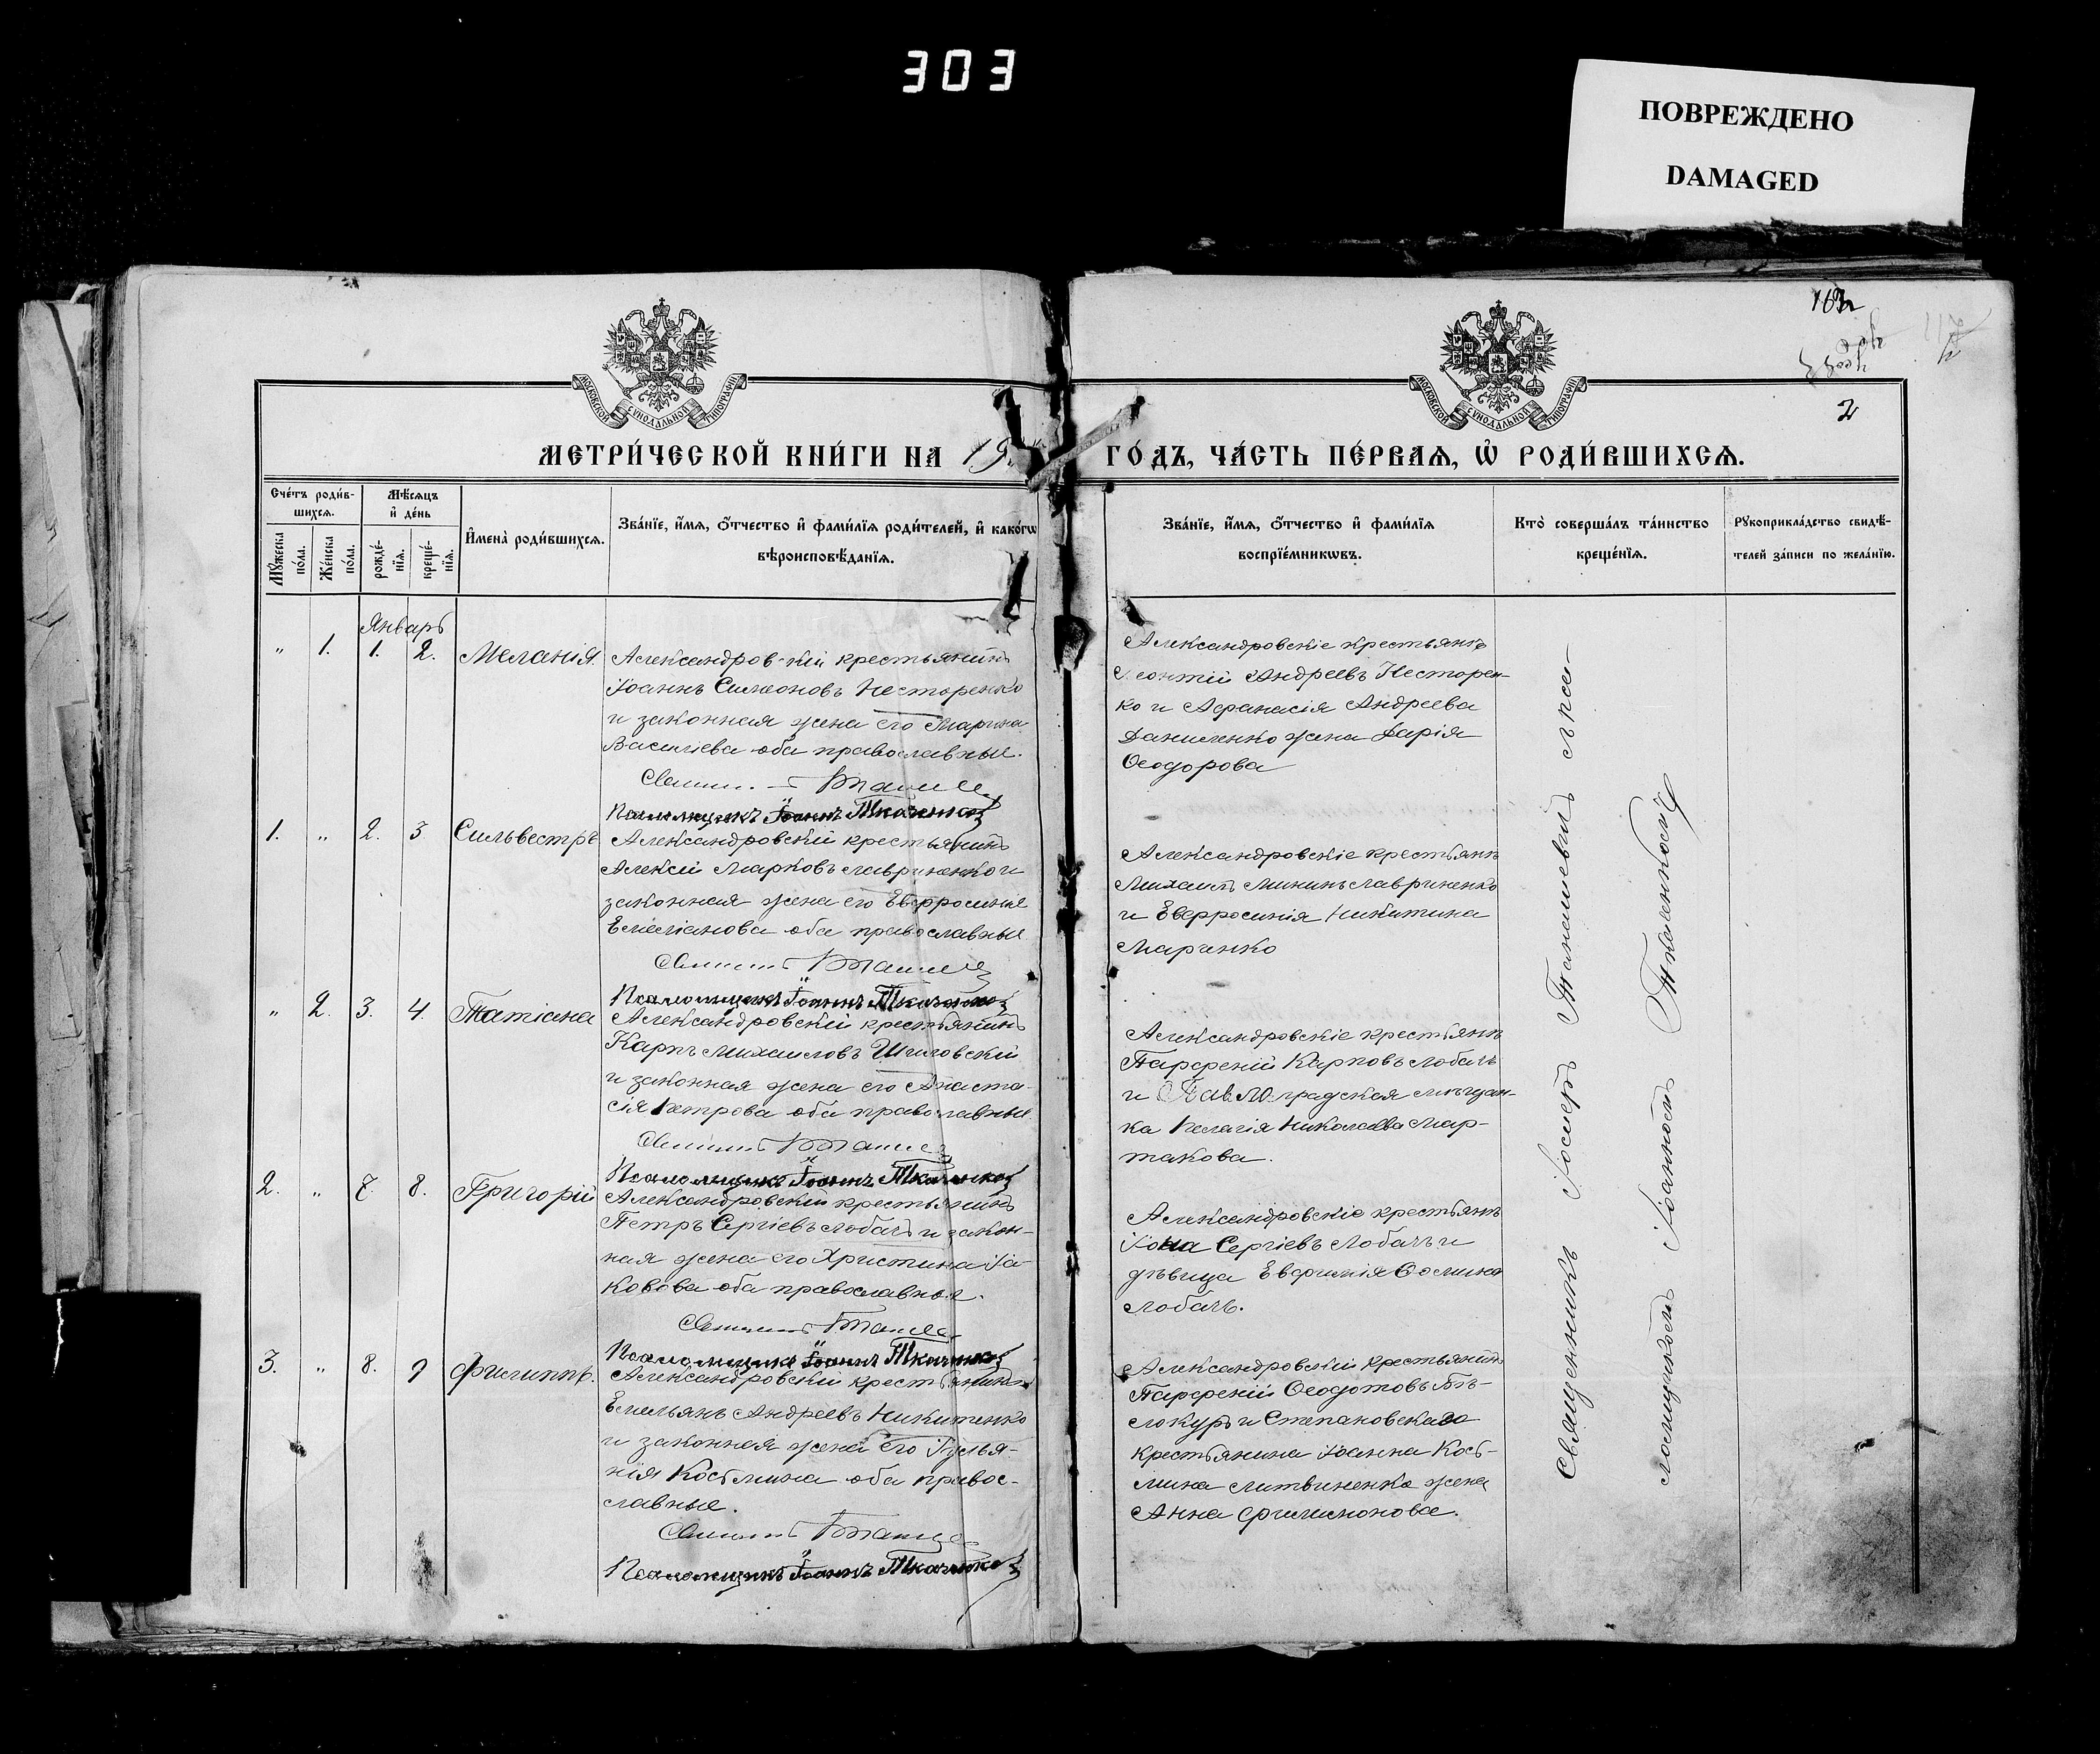 303
ПОВРЕЖДЕНО
DAMAGED
163
2
МОСКОВСКОЙ СѴНОДАЛЬНОЙ ТИПОГРАФІИ
МОСКОВСКОЙ СѴНОДАЛЬНОЙ ТИПОГРАФІИ
МЕТРИ́ЧЕСКОЙ КНИ́ГИ НА 19
ГО́ДЪ, ЧА́СТЬ ПЕ́РВАѦ, Ѡ҆ РОДИ́ВШИХСѦ.
Сче́тъ роди́в-
шихсѧ.
Мѣ́сѧцъ
и҆ де́нь
Мꙋ́жеска
по́ла.
Же́нска
по́ла.
рожде́-
нїѧ.
креще́-
нїѧ.
И҆мена̀ роди́вшихсѧ.
Зва́нїе, и҆́мѧ, ѻ҆́тчество и҆ фами́лїѧ роди́телей, и҆ како́гѡ
вѣроисповѣ́данїѧ.
Зва́нїе, и҆́мѧ, ѻ҆́тчество и҆ фами́лїѧ
воспрїе́мникѡвъ.
Кто̀ соверша́лъ та́инство
креще́нїѧ.
Рꙋкоприкла́дство свидѣ́-
телей за́писи по жела́нїю.
Январь
" 1. 1. 2. Меланія.
Александров-кій крестьянинъ
Іоаннъ Симеоновъ Несторенко
и законная жена его Марина
Василіева оба православные.
Псаломщикъ Іоаннъ Ткаченко
Александровскіе крестьянъ
Леонтій Андреевъ Несторен-
ко и Афанасія Андреева
Даниленко жена Дарія
Ѳеодорова
1. " 2. 3 Сильвестръ
Александровскій крестьянинъ
Алексій Марковъ Лавриненко и
законная жена его Евфросинія
Емеліанова оба православные
Псаломщикъ Іоаннъ Ткаченко
Александровскіе крестьянъ
Михаилъ Мининъ Лавриненко
и Евфросинія Никитина
Маринко
" 2. 3. 4. Татіана
Александровскій крестьянинъ
Карпъ Михаиловъ
и законная жена его Анаста-
сія Петрова оба православные
Псаломщикъ Іоаннъ Ткаченко
Александровскіе крестьянъ
Парфеній Карповъ Лобачъ
и Павлоградская мѣщан-
ка Пелагія Николаева Мар-
такова.
2. " 7. 8. Григорій
Александровскій крестьянинъ
Петръ Сергіевъ Лобачъ и закон-
ная жена его Христина Іа-
ковова оба православные.
Псаломщикъ Іоаннъ Ткаченко
Александровскіе крестьянъ
Іона Сергіевъ Лобачъ и
дѣвица Евфимія Ѳомина
Лобачъ.
3. " 8. 9 Филиппъ.
Александровскій крестьянинъ
Емельянъ Андреевъ Никитенко
и законная жена его Іулья-
нія Косьмина оба правос-
славные.
Псаломщикъ Іоаннъ Ткаченко
Александровскій крестьянинъ
Парфеній Ѳеодотовъ Бѣ-
локуръ и Степановскаго
крестьянина Іоанна Кось-
мина Литвиненко жена
Анна Филимонова.
Священникъ Іосифъ Танашевичъ съ пса-
ломщикомъ Іоанномъ Ткаченкомъ